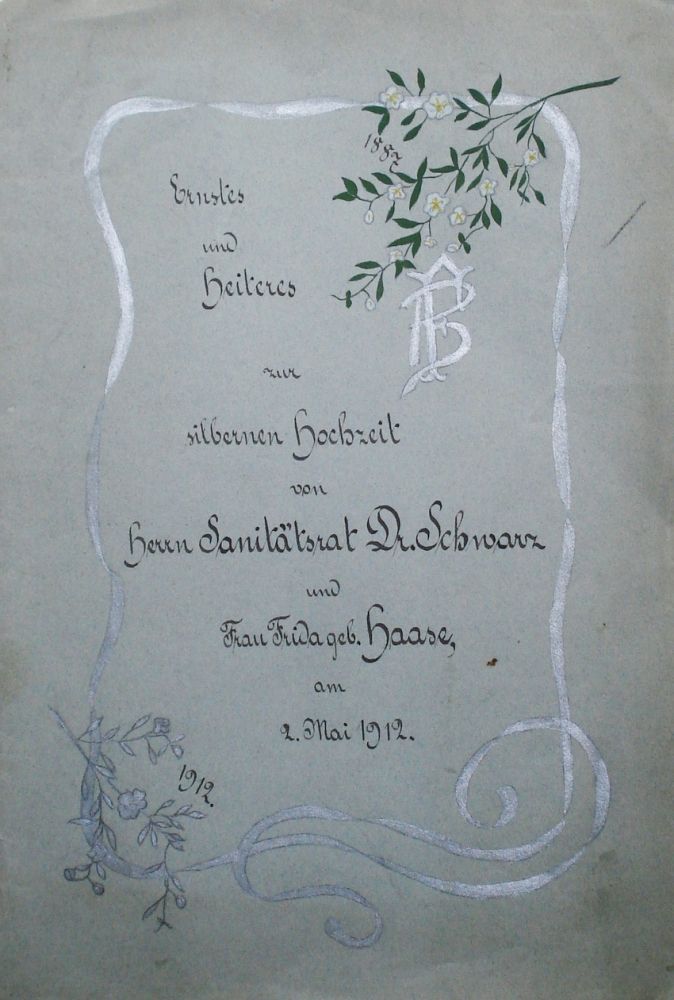 1887
Ernstes
und
Heiteres
zur
silbernen Hochzeit
von
Herrn Sanitätsrat Dr. Schwarz
und
Frau Frida geb. Haase,
am
2. Mai 1912.
1912.